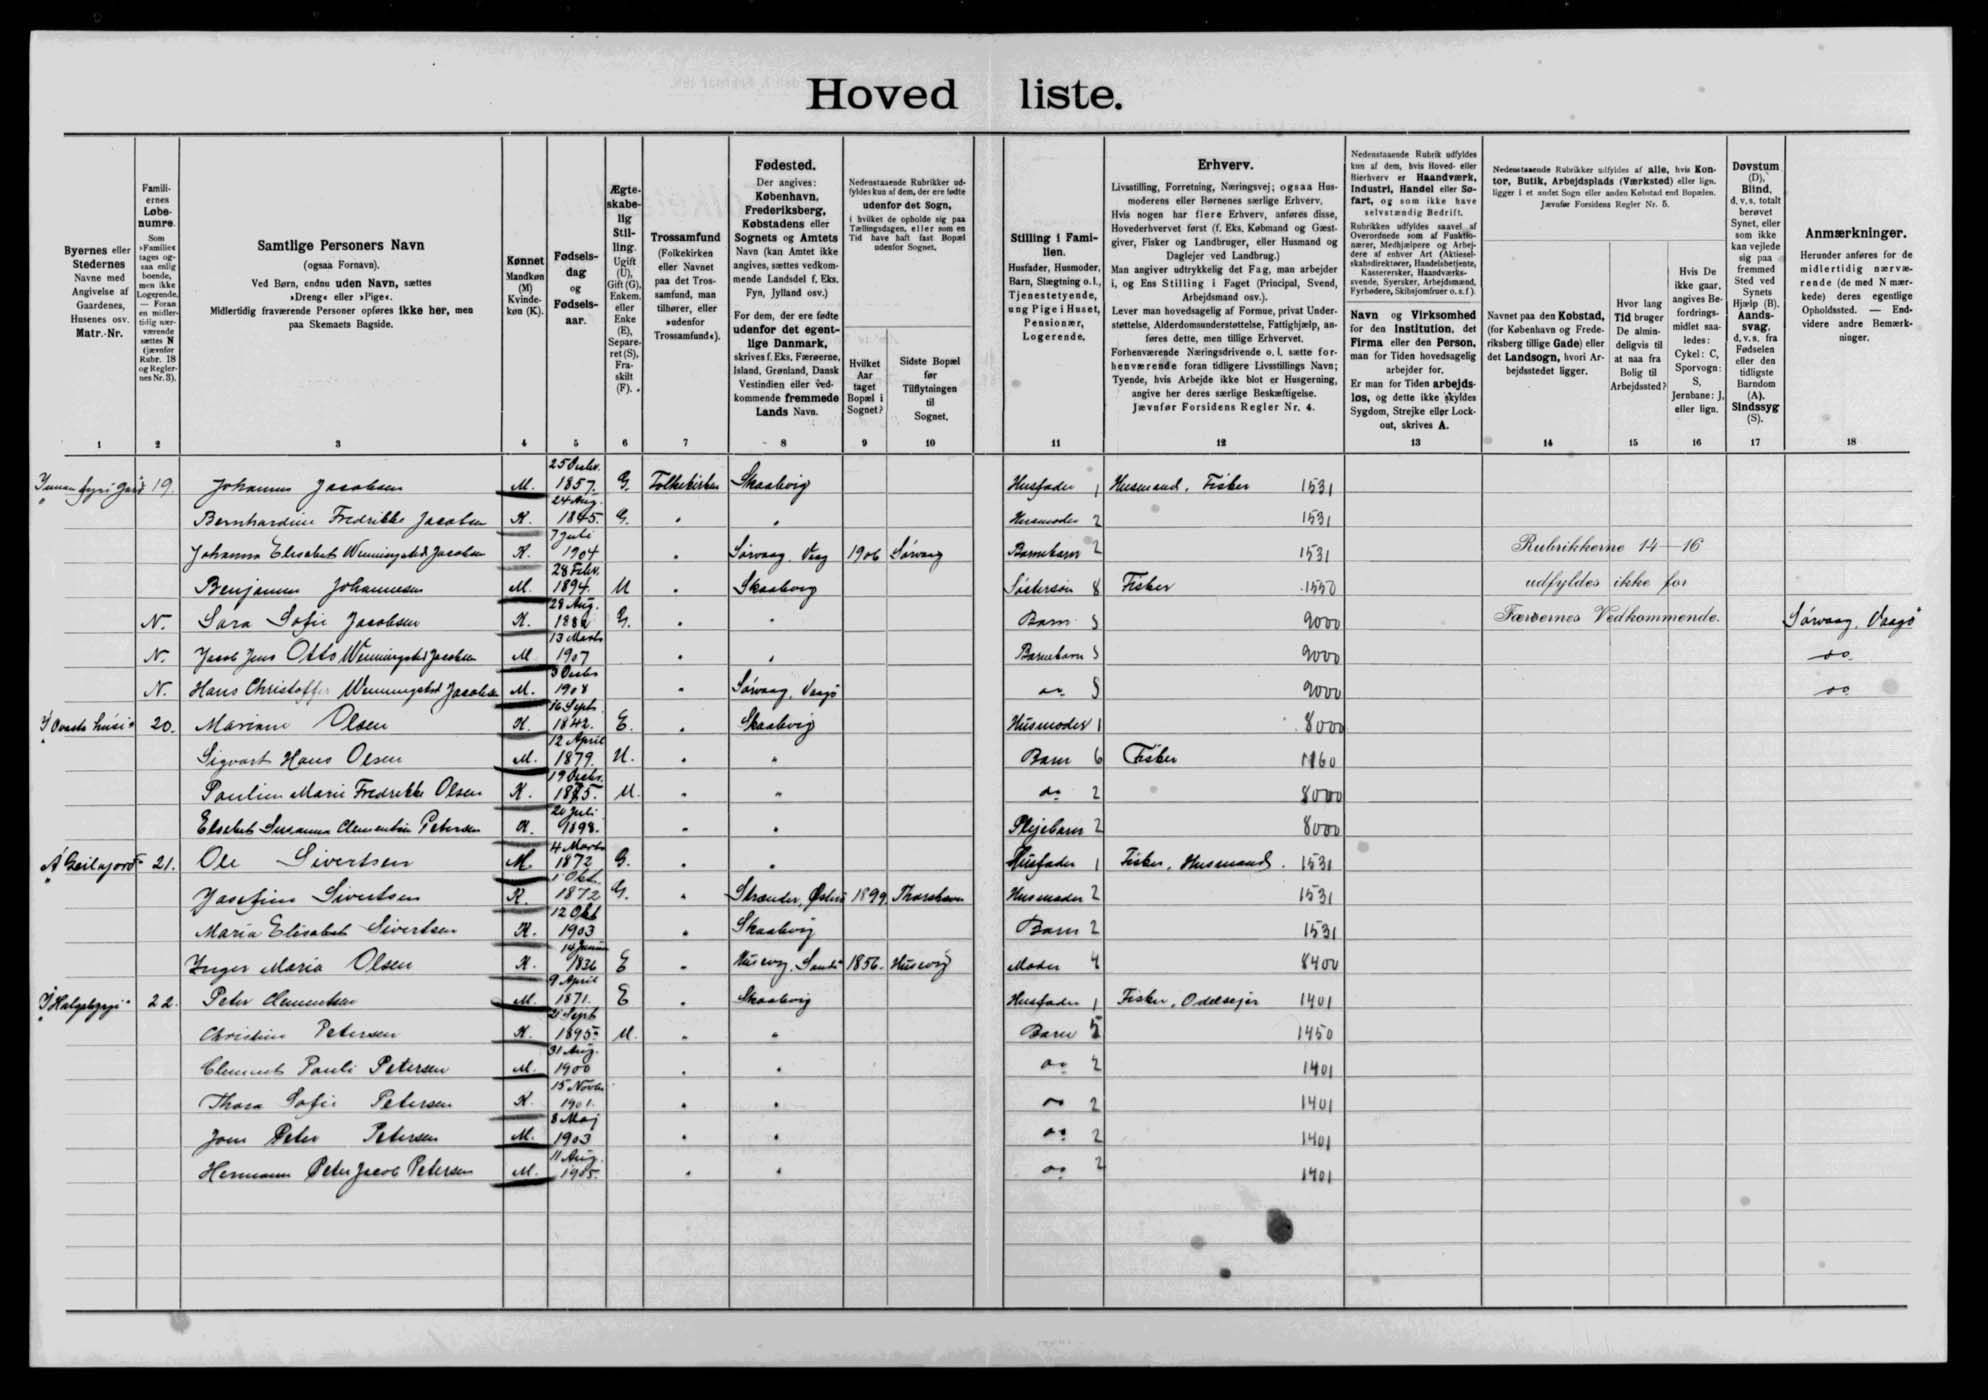 Hoved liste.
Byernes eller Stedernes Navne med Angivelse af Gaardenes, Husenes osv. Matr.-Nr.
Familiernes Løbenumre. Som »Familie« tages ogsaa enlig boende, men ikke Logerende. — Foran en midlertidig nærværende sættes N (jævnfør Rubr. 18 og Reglernes Nr. 3).
Samtlige Personers Navn (ogsaa Fornavn). Ved Børn, endnu uden Navn, sættes »Dreng« eller »Pige«. Midlertidig fraværende Personer opføres ikke her, men paa Skemaets Bagside.
Kønnet Mandkøn (M) Kvindekøn (K).
Fødselsdag og Fødselsaar.
Ægteskabelig Stilling. Ugift (U), Gift (G), Enkem. eller Enke (E), Separeret (S), Fraskilt (F).
Trossamfund (Folkekirken eller Navnet paa det Trossamfund, man tilhører, eller »udenfor Trossamfund«).
Fødested. Der angives: København, Frederiksberg, Købstadens eller Sognets og Amtets Navn (kan Amtet ikke angives, sættes vedkommende Landsdel f. Eks. Fyn, Jylland osv.) For dem, der ere fødte udenfor det egentlige Danmark, skrives f. Eks. Færøerne, Island, Grønland, Dansk Vestindien eller vedkommende fremmede Lands Navn.
Nedenstaaende Rubrikker udfyldes kun af dem, der ere fødte udenfor det Sogn, i hvilket de opholde sig paa Tællingsdagen, eller som en Tid have haft fast Bopæl udenfor Sognet.
Hvilket Aar taget Bopæl i Sognet?
Sidste Bopæl før Tilflytningen til Sognet.
Stilling i Familien. Husfader, Husmoder, Barn, Slægtning o. l., Tjenestetyende, ung Pige i Huset, Pensionær, Logerende.
Erhverv. Livsstilling, Forretning, Næringsvej; ogsaa Husmoderens eller Børnenes særlige Erhverv. Hvis nogen har flere Erhverv, anføres disse, Hovederhvervet først (f. Eks. Købmand og Gæstgiver, Fisker og Landbruger, eller Husmand og Daglejer ved Landbrug.) Man angiver udtrykkelig det Fag, man arbejder i, og Ens Stilling i Faget (Principal, Svend, Arbejdsmand osv.). Lever man hovedsagelig af Formue, privat Understøttelse, Alderdomsunderstøttelse, Fattighjælp, anføres dette, men tillige Erhvervet. Forhenværende Næringsdrivende o. l. sætte forhenværende foran tidligere Livsstillings Navn; Tyende, hvis Arbejde ikke blot er Husgerning, angive her deres særlige Beskæftigelse. Jævnfør Forsidens Regler Nr. 4.
Nedenstaaende Rubrik udfyldes kun af dem, hvis Hoved- eller Bierhverv er Haandværk, Industri, Handel eller Søfart, og som ikke have selvstændig Bedrift. Rubrikken udfyldes saavel af Overordnede som af Funktionærer, Medhjælpere og Arbejdere af enhver Art (Aktieselskabsdirektører, Handelsbetjente, Kasserersker, Haandværkssvende, Syersker, Arbejdsmænd, Fyrbødere, Skibsjomfruer o. s. f.).
Navn og Virksomhed for den Institution, det Firma eller den Person, man for Tiden hovedsagelig arbejder for. Er man for Tiden arbejdsløs, og dette ikke skyldes Sygdom, Strejke eller Lockout, skrives A.
Nedenstaaende Rubrikker udfyldes af alle, hvis Kontor, Butik, Arbejdsplads (Værksted) eller lign. ligger i et andet Sogn eller anden Købstad end Bopælen. Jævnfør Forsidens Regler Nr. 5.
Navnet paa den Købstad, (for København og Frederiksberg tillige Gade) eller det Landsogn, hvori Arbejdsstedet ligger.
Hvor lang Tid bruger De almindeligvis til at naa fra Bolig til Arbejdssted?
Hvis De ikke gaar, angives Befordringsmidlet saaledes: Cykel: C, Sporvogn: S, Jernbane: J, eller lign.
Døvstum (D), Blind, d. v. s. totalt berøvet Synet, eller som ikke kan vejlede sig paa fremmed Sted ved Synets Hjælp (B), Aandssvag, d. v. s. fra Fødselen eller den tidligste Barndom (A). Sindssyg (S).
Anmærkninger. Herunder anføres for de midlertidig nærværende (de med N mærkede) deres egentlige Opholdssted. — Endvidere andre Bemærkninger.
1 2 3 4 5 6 7 8 9 10 11 12 13 14 15 16 17 18
19. Johannes Jacobsen M. 25 Decbr. 1857. G. Folkekirken Skaalvig Husfader 1 Husmand, Fisker 1531
Bernhardine Fredrikke Jacobsen K. 24 Aug. 1845. G. " " Husmoder 2 1531
Johanna Elisabet Wenningsted Jacobsen K. 7 Juli 1904 " Sørvaag, Vaag 1906 Sørvaag Barnebarn 2 1531 Rubrikkerne 14—16
Benjamin Johannesen M. 28 Febr. 1894. U " Skaalvig Søstersøn 8 Fisker 1550 udfyldes ikke for
N. Sara Sofie Jacobsen K. 28 Aug. G. " " Barn 5 9000 Færøernes Vedkommende. Sørvaag, Vaagø
N. Jacob Jens Otto Wenningsted Jacobsen M 13 Marts 1907 " " Barnebarn 5 9000 do
N. Hans Christoffer Wenningsted Jacobsen M. 3 Decbr 1908 " Sørvaag, Vaagø do 5 9000 do
20. Mariane Olsen K. 16 Sept. 1842. E. " Skaalvig Husmoder 1 8000
Sigvart Hans Olsen M. 12 April 1879. U. " " Barn 6 Fisker 1160
Pauline Marie Fredrikke Olsen K. 19 Decbr. U. " " do 2 8000
Elsebet Susanna Clementine Petersen K. 20 Juli 1898. " " Plejebarn 2 8000
21. Ole Sivertsen M. 4 Marts 1872 G. " " Husfader 1 Fisker, Husmand. 1531
Josefine Sivertsen K. 1 Okt. 1872 G. " Strender, Østerø 1899. Thorshavn Husmoder 2 1531
Maria Elisabet Sivertsen K. 12 Okt 1903 " Skaalvig Barn 2 1531
Inger Maria Olsen K. 14 Januar 1836 E " Husevig, Sandø 1856. Husevig Moder 4 8400
22. Peter Clementsen M. 9 April 1871. E " Skaalvig Husfader 1 Fisker, Odelsejer 1401
Christine Petersen K. 21 Sept 1895 U. " " Barn 5 1450
Clement Pauli Petersen M. 31 Aug. 1900 " " do 2 1401
Thora Sofie Petersen K. 15 Novbr 1901. " " do 2 1401
Joen Peter Petersen M. 8 Maj 1903 " " do 2 1401
Hermann Peter Jacob Petersen M. 11 Aug. 1905. " " do 2 1401